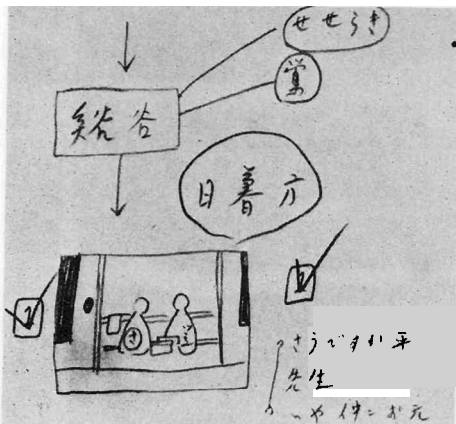 せせらぎ
鶯
谿谷
日暮方
さうですか 平
先生
いや 仲々お元